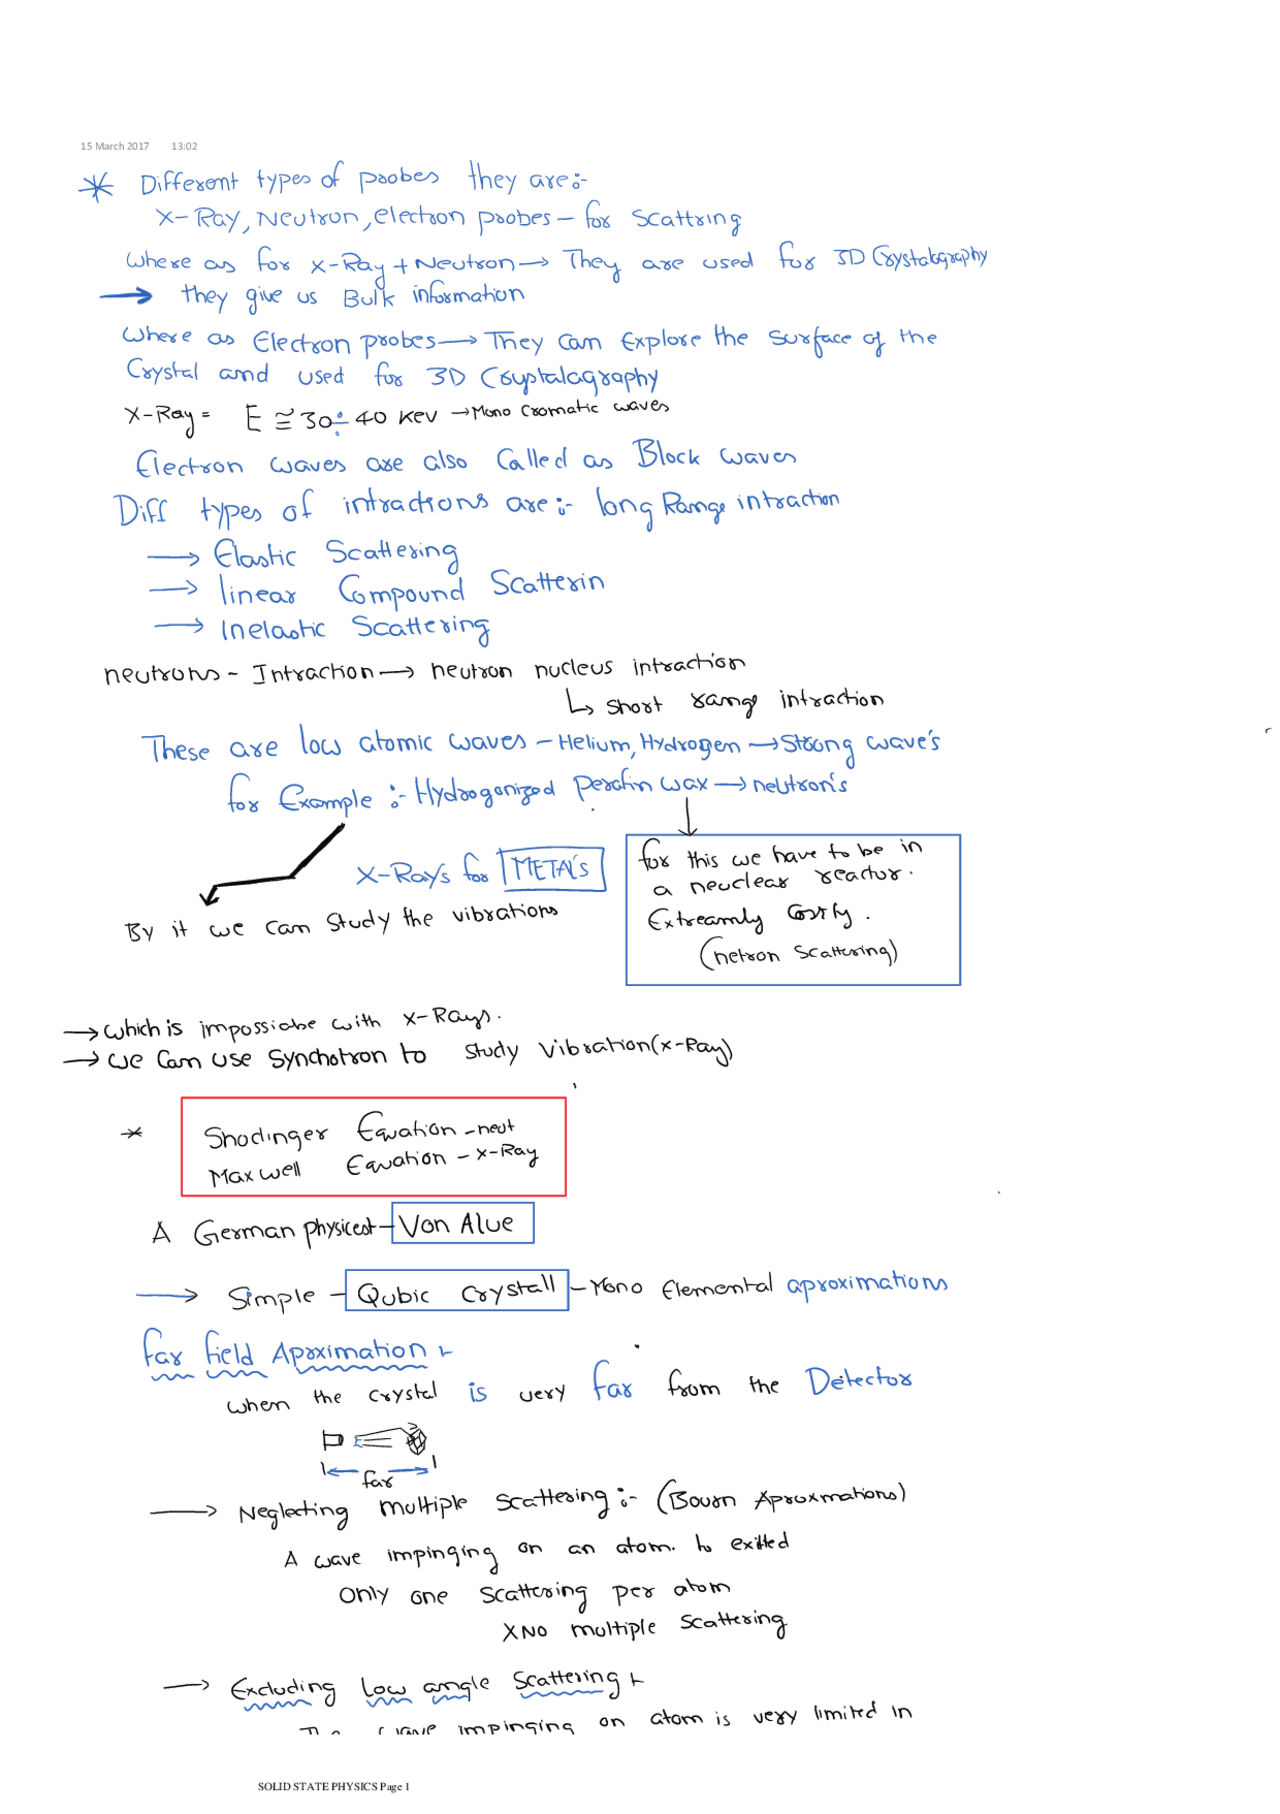 15 March 2017 13:02
* Different types of probes they are:-
X-Ray, Neutron, electron probes - for Scattring
Where as for X-Ray + Neutron → They are used for 3D Crystalography
→ they give us Bulk information
Where as Electron probes → They can Explore the surface of the
Crystal and used for 3D Cryptalagraphy
X-Ray = E ≅ 30÷40 KeV → Mono Cromatic waves
Electron waves are also Called as Block waves
Diff types of intractions are:- long Range intraction
→ Elastic Scattering
→ linear Compound Scatterin
→ Inelastic Scattering
neutrons - Intraction → neutron nucleus intraction
↳ Short range intraction
These are low atomic waves - Helium, Hydrogen → Strong wave's
for Example :- Hydrogonized Perafin wax → neutron's
X-Ray's for METAl's
for this we have to be in
a neuclear reactor.
Extreamly Costly.
(netron Scattering)
By it we can Study the vibrations
→ which is impossiobe with X-Rays.
→ we Can use Synchotron to Study Vibration (X-Ray)
* Shodinger Equation - neut
Maxwell Equation - X-Ray
A German physicest - Von Alue
→ Simple - Qubic Crystall - Mono Elemental aproximations
far field Aproximation :-
when the crystal is very far from the Detector
far
→ Neglecting multiple Scattering :- (Bourn Aproxmations)
A wave impinging on an atom. to exitted
Only one Scattering per atom
X No multiple Scattering
→ Excluding Low angle Scattering :-
wave impinging on atom is very limited in
SOLID STATE PHYSICS Page 1